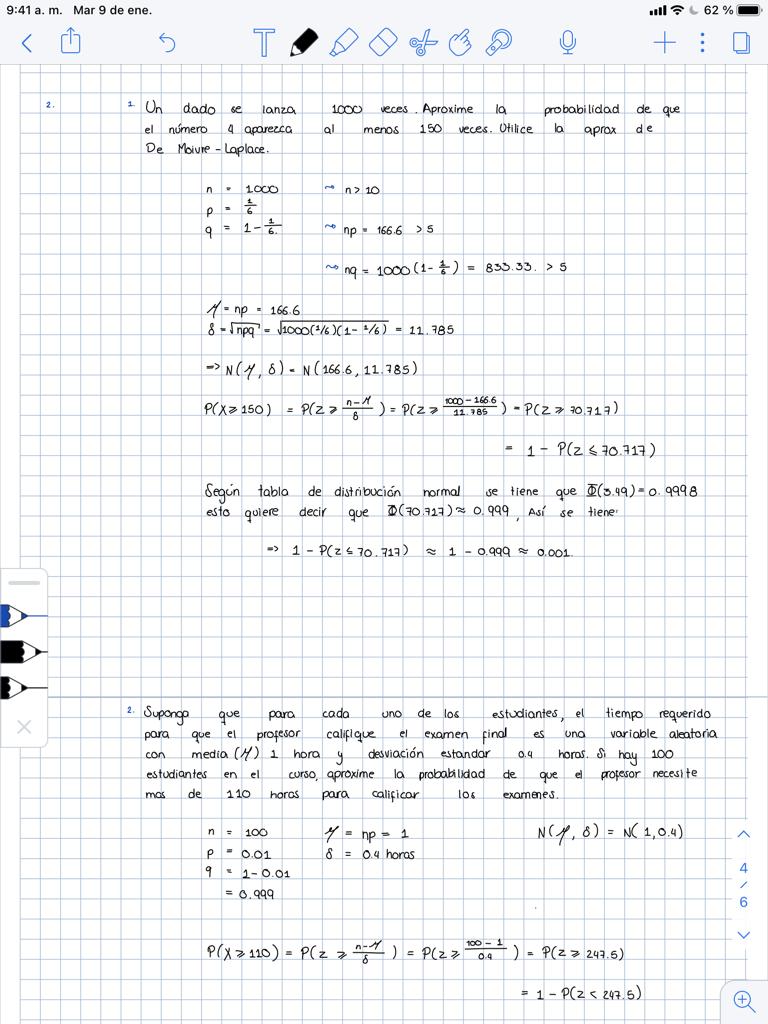 9:41 a. m. Mar 9 de ene. 62 %
2. 1. Un dado se lanza 1000 veces. Aproxime la probabilidad de que
el número 4 aparezca al menos 150 veces. Utilice la aprox de
De Moivre - Laplace.
n = 1000 ~> n > 10
p = 1/6
q = 1 - 1/6. ~> np = 166.6 > 5
~> nq = 1000 (1 - 1/6) = 833.33. > 5
μ = np = 166.6
δ = √npq = √1000(1/6)(1 - 1/6) = 11.785
=> N(μ, δ) = N(166.6, 11.785)
P(X ≥ 150) = P(z ≥ (n-μ)/δ) = P(z ≥ (1000-166.6)/11.785) = P(z ≥ 70.717)
= 1 - P(z ≤ 70.717)
Según tabla de distribución normal se tiene que Φ(3.49) = 0.9998
esto quiere decir que Φ(70.717) ≈ 0.999, Así se tiene:
=> 1 - P(z ≤ 70.717) ≈ 1 - 0.999 ≈ 0.001.
2. Suponga que para cada uno de los estudiantes, el tiempo requerido
para que el profesor califique el examen final es una variable aleatoria
con media (μ) 1 hora y desviación estandar 0.4 horas. Si hay 100
estudiantes en el curso, aproxime la probabilidad de que el profesor necesite
mas de 110 horas para calificar los examenes.
n = 100 μ = np = 1 N(μ, δ) = N(1, 0.4)
p = 0.01 δ = 0.4 horas
q = 1 - 0.01
= 0.999
4
6
P(X ≥ 110) = P(z ≥ (n-μ)/δ) = P(z ≥ (100-1)/0.4) = P(z ≥ 247.5)
= 1 - P(z < 247.5)